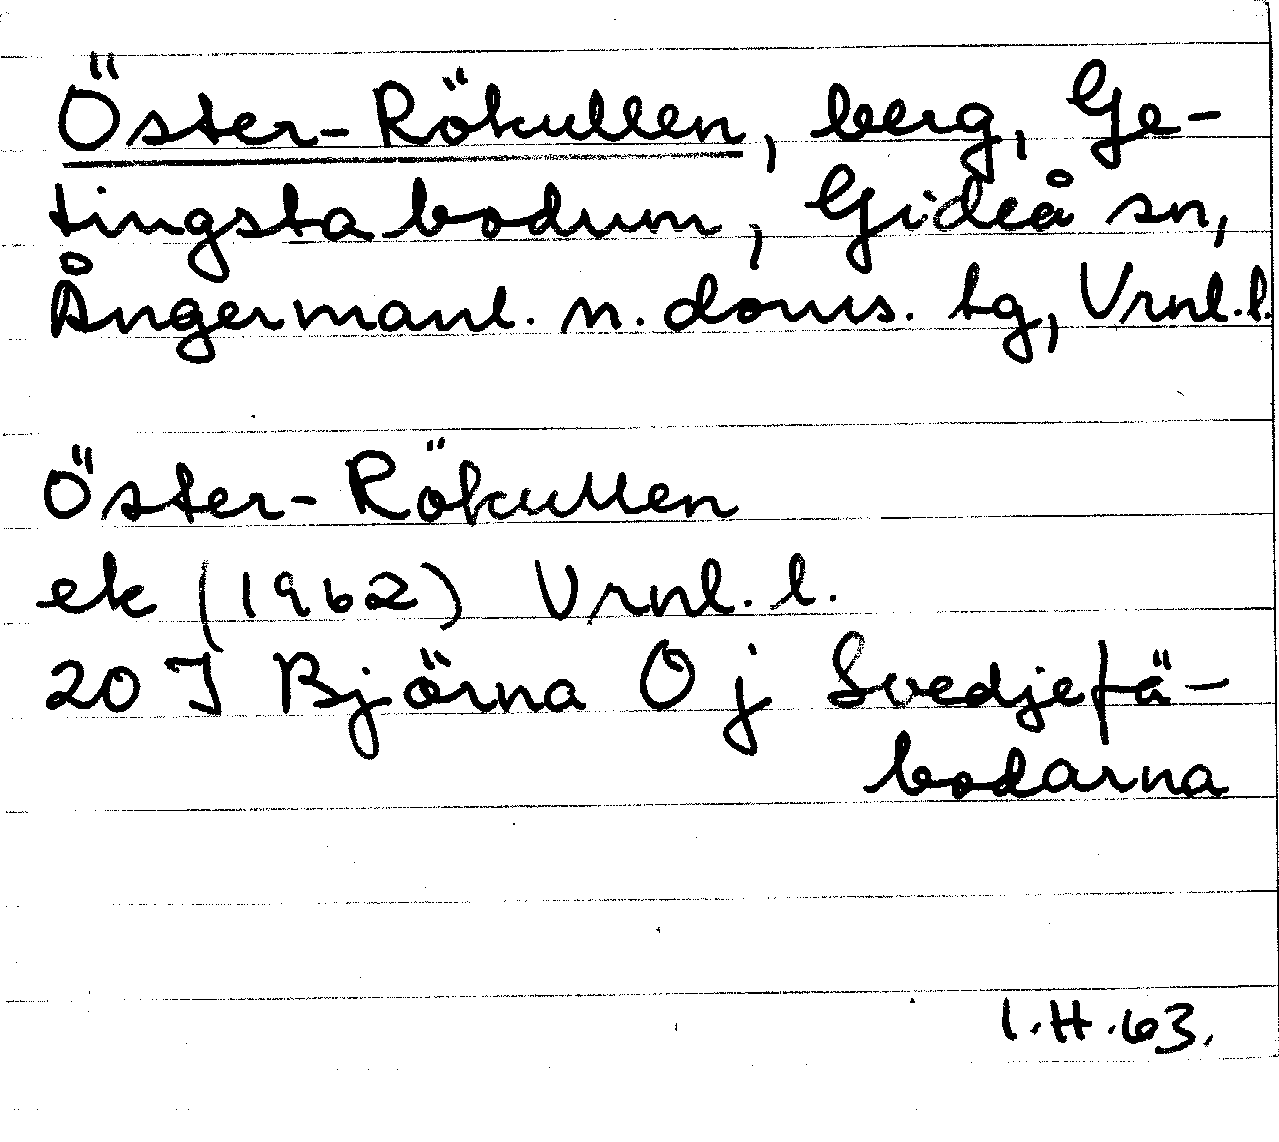 Öster-Rökullen, berg, Ge-
tingsta bodum, Gideå sn,
Ångermanl. n. doms. tg, Vrnl.l.
Öster-Rökullen
ek (1962) Vrnl. l.
20 I Björna O j Svedjefä-
bodarna
I.H.63.